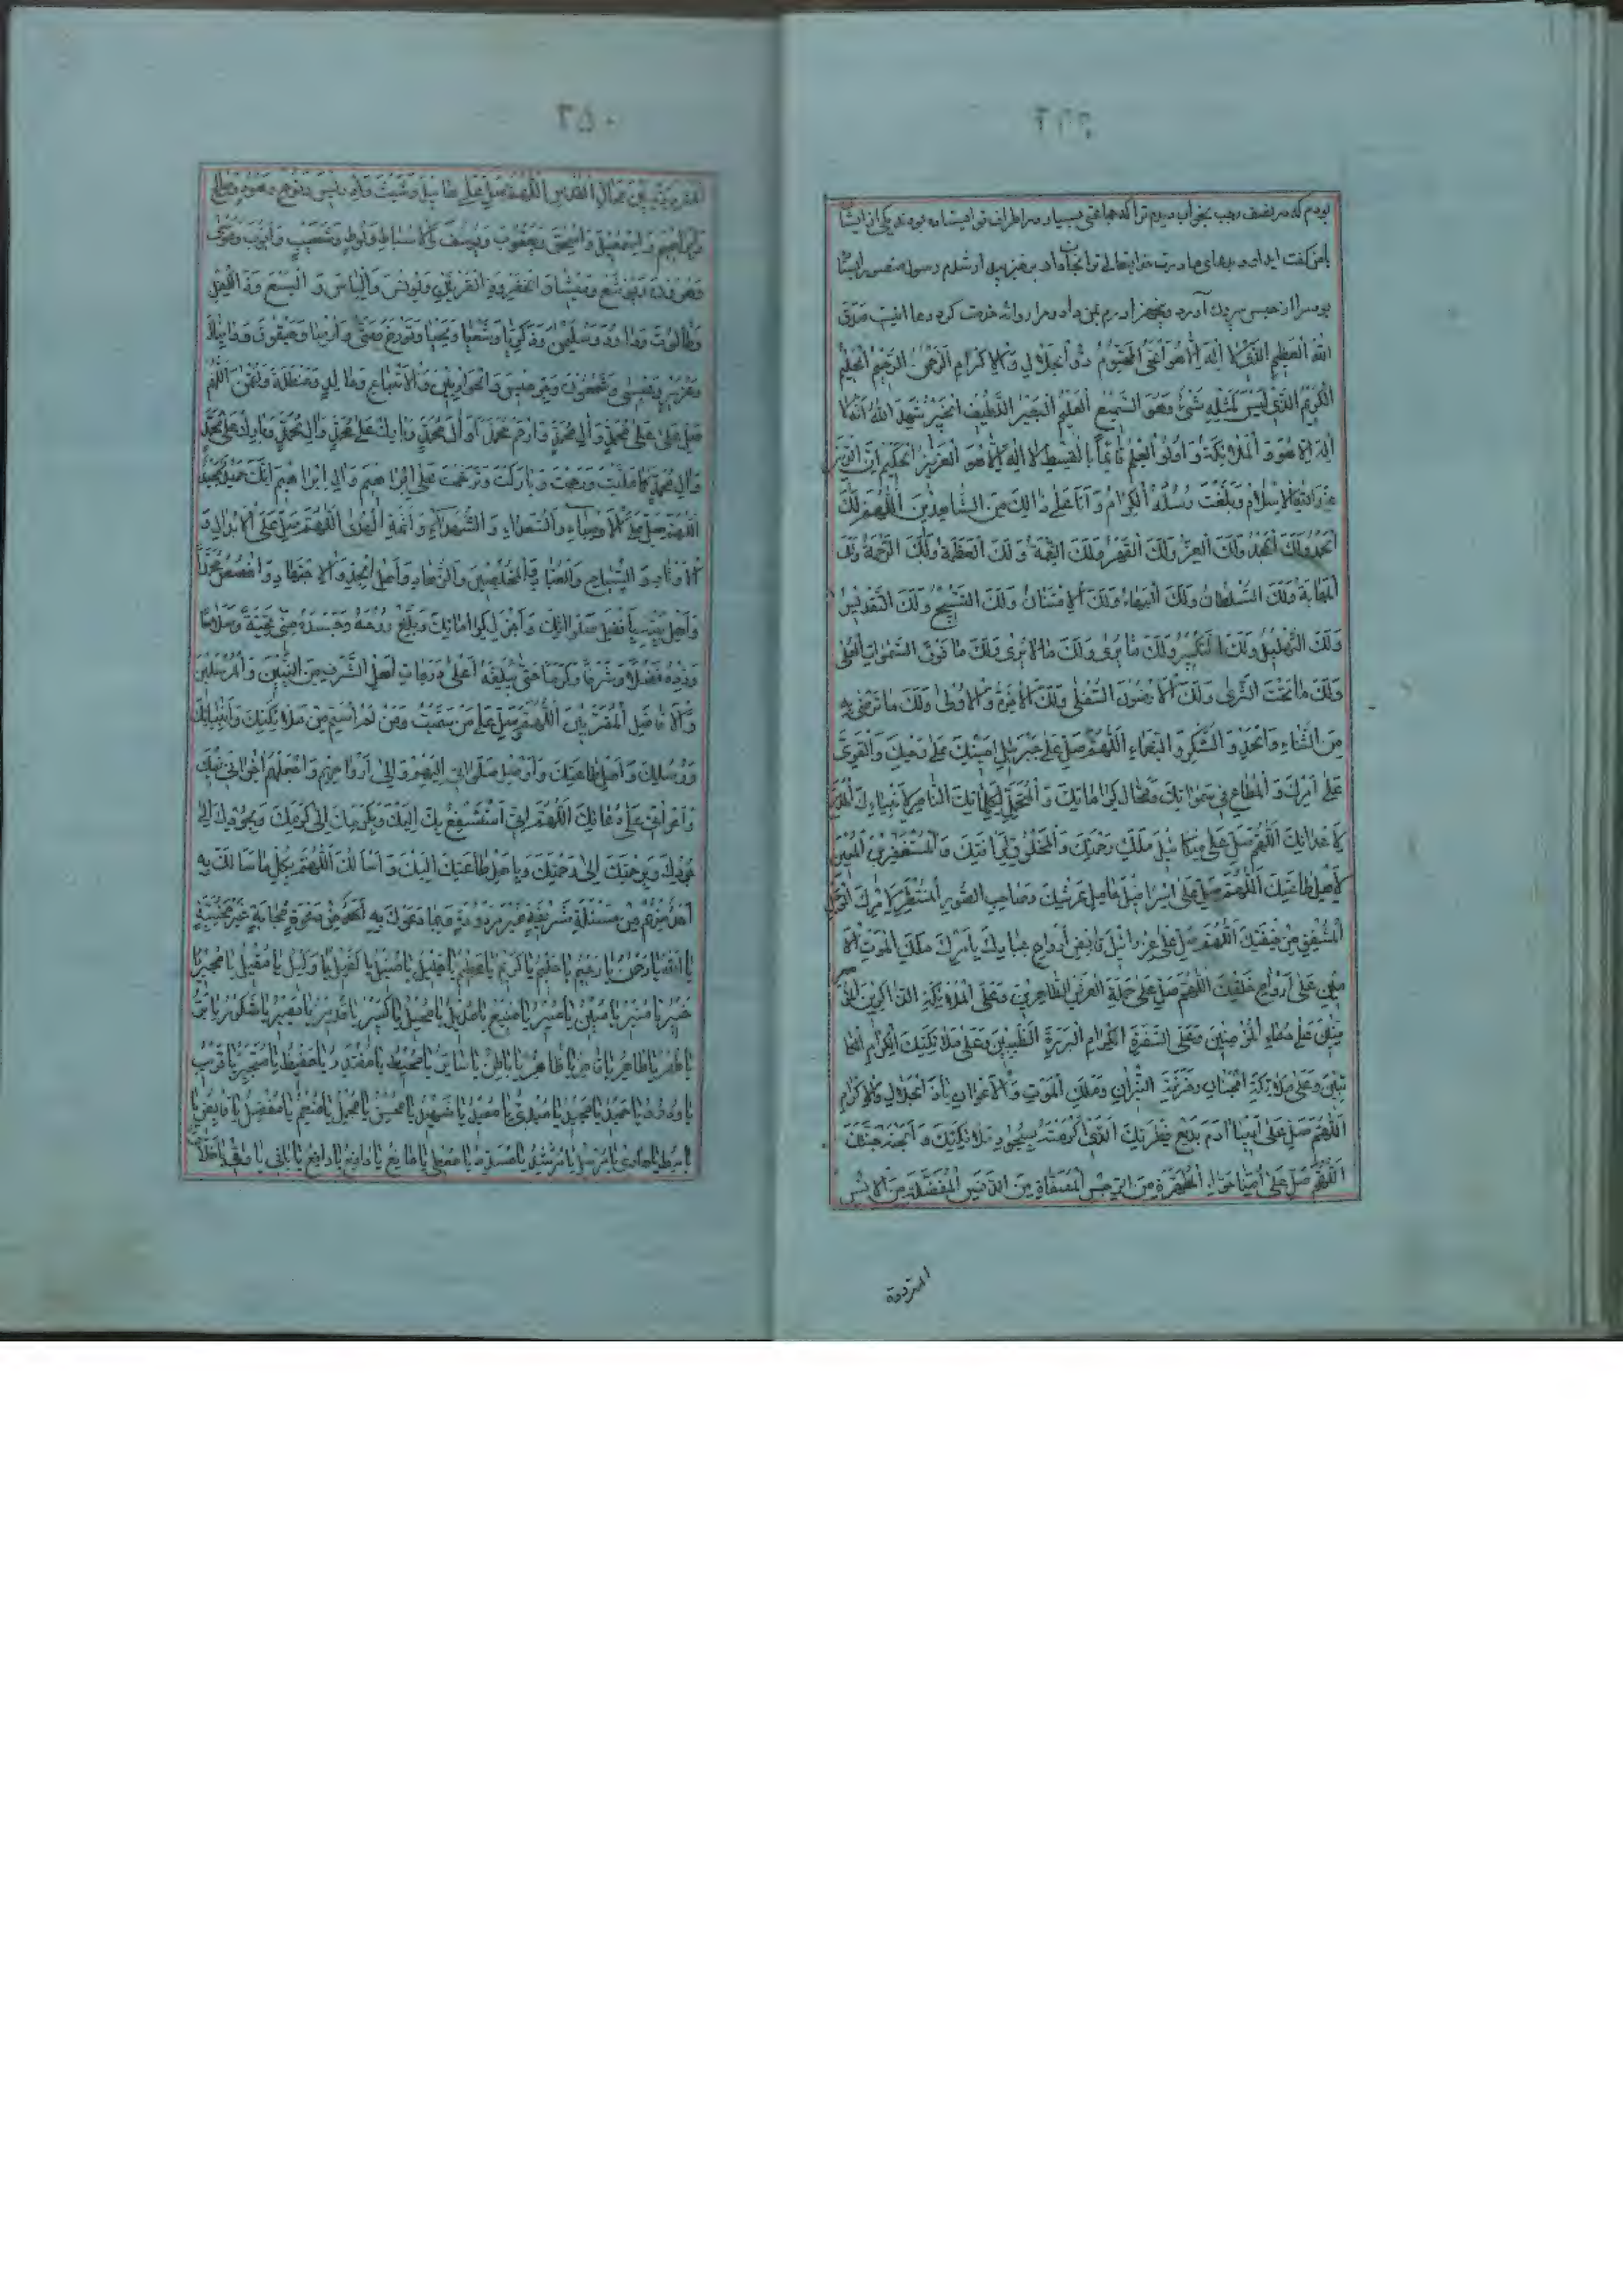 بودم که در نصف رجب بخواب دیدم ترا که جماعتی بسیار در اطراف تو ایستاده بودند یکی از ایشان
با من گفت ای داود دعای مادرت خدایتعالی ترا نجات داد
بود مرا از حبس بیرون آورد و پنجهزار درم بمن داد و مرا روانه خدمت کرد دعا اینست صَدَقَ
اللّٰهُ الْعَظِیْمُ الَّذِیْ لَا اِلٰهَ اِلَّا هُوَ الْحَیُّ الْقَیُّوْمُ ذُو الْجَلَالِ وَالْاِکْرَامِ الرَّحْمٰنُ الرَّحِیْمُ الْحَلِیْمُ
الْکَرِیْمُ الَّذِیْ لَیْسَ کَمِثْلِهٖ شَیْءٌ وَهُوَ السَّمِیْعُ الْعَلِیْمُ الْبَصِیْرُ اللَّطِیْفُ الْخَبِیْرُ شَهِدَ اللّٰهُ اَنَّهُ لَا
اِلٰهَ اِلَّا هُوَ وَالْمَلٰئِکَةُ وَاُولُو الْعِلْمِ قَائِمًا بِالْقِسْطِ لَا اِلٰهَ اِلَّا هُوَ الْعَزِیْزُ الْحَکِیْمُ اِنَّ الدِّیْنَ
عِنْدَ اللّٰهِ الْاِسْلَامُ وَبَلَّغَتْ رُسُلُهُ الْکِرَامُ وَاَنَا عَلٰی ذٰلِکَ مِنَ الشَّاهِدِیْنَ اَللّٰهُمَّ لَکَ
الْحَمْدُ وَلَکَ الْمَجْدُ وَلَکَ الْعِزُّ وَلَکَ الْقَهْرُ وَلَکَ النِّعْمَةُ وَلَکَ الْعَظَمَةُ وَلَکَ الرَّحْمَةُ وَلَکَ
الْمَهَابَةُ وَلَکَ السُّلْطَانُ وَلَکَ الْبَهَاءُ وَلَکَ الْاِمْتِنَانُ وَلَکَ التَّسْبِیْحُ وَلَکَ التَّقْدِیْسُ
وَلَکَ التَّهْلِیْلُ وَلَکَ التَّکْبِیْرُ وَلَکَ مَا یُرٰی وَلَکَ مَا لَا یُرٰی وَلَکَ مَا فَوْقَ السَّمٰوَاتِ الْعُلٰی
وَلَکَ مَا تَحْتَ الثَّرٰی وَلَکَ الْاَرَضُوْنَ السُّفْلٰی وَلَکَ الْاٰخِرَةُ وَالْاُوْلٰی وَلَکَ مَا تَرْضٰی بِهٖ
مِنَ الثَّنَاءِ وَالْحَمْدِ وَالشُّکْرِ وَالنَّعْمَاءِ اَللّٰهُمَّ صَلِّ عَلٰی جَبْرَئِیْلَ اَمِیْنِکَ عَلٰی وَحْیِکَ وَالْقَوِیِّ
عَلٰی اَمْرِکَ وَالْمُطَاعِ فِیْ سَمٰوَاتِکَ وَمَحَالِّ کَرَامَاتِکَ وَالْمُتَحَمِّلِ لِکَلِمَاتِکَ النَّاصِرِ لِاَنْبِیَائِکَ الْمُدَمِّرِ
لِاَعْدَائِکَ اَللّٰهُمَّ صَلِّ عَلٰی مِیْکَائِیْلَ مَلَکِ رَحْمَتِکَ وَالْمَخْلُوْقِ لِرَاْفَتِکَ وَالْمُسْتَغْفِرِ الْمُعِیْنِ
لِاَهْلِ طَاعَتِکَ اَللّٰهُمَّ صَلِّ عَلٰی اِسْرَافِیْلَ حَامِلِ عَرْشِکَ وَصَاحِبِ الصُّوْرِ الْمُنْتَظِرِ لِاَمْرِکَ الْوَجِلِ
الْمُشْفِقِ مِنْ خِیْفَتِکَ اَللّٰهُمَّ صَلِّ عَلٰی عِزْرَائِیْلَ قَابِضِ اَرْوَاحِ عِبَادِکَ بِاَمْرِکَ مَلَکِ الْمَوْتِ
عَلٰی اَرْوَاحِ خَلْقِکَ اَللّٰهُمَّ صَلِّ عَلٰی حَمَلَةِ الْعَرْشِ الطَّاهِرِیْنَ وَعَلَی الْمَلٰئِکَةِ الذَّاکِرِیْنَ
عَلٰی دُعَاءِ الْمُؤْمِنِیْنَ وَعَلَی السَّفَرَةِ الْکِرَامِ الْبَرَرَةِ الطَّیِّبِیْنَ وَعَلٰی مَلٰئِکَتِکَ الْکِرَامِ الْکَا
تِبِیْنَ وَعَلٰی مَلٰئِکَةِ الْجِنَانِ وَخَزَنَةِ النِّیْرَانِ وَمَلَکِ الْمَوْتِ وَالْاَعْوَانِ یَا ذَا الْجَلَالِ وَالْاِکْرَامِ
اَللّٰهُمَّ صَلِّ عَلٰی اَبِیْنَا اٰدَمَ بَدِیْعِ فِطْرَتِکَ الَّذِیْ اَکْرَمْتَهُ بِسُجُوْدِ مَلٰئِکَتِکَ وَاَبَحْتَهُ جَنَّتَکَ
اَللّٰهُمَّ صَلِّ عَلٰی اُمِّنَا حَوَّاءَ الْمُطَهَّرَةِ مِنَ الرِّجْسِ الْمُصَفَّاةِ مِنَ الدَّنَسِ الْمُفَضَّلَةِ مِنَ الْاِنْسِ
المترددة
٢٥٠
الْمُتَرَدِّدَةِ بَیْنَ مَحَالِّ الْقُدْسِ اَللّٰهُمَّ صَلِّ عَلٰی هَابِیْلَ وَشِیْثَ وَاِدْرِیْسَ وَنُوْحٍ وَهُوْدٍ وَصَالِحٍ
وَاِبْرَاهِیْمَ وَاِسْمٰعِیْلَ وَاِسْحٰقَ وَیَعْقُوْبَ وَیُوْسُفَ وَالْاَسْبَاطِ وَلُوْطٍ وَشُعَیْبٍ وَاَیُّوْبَ وَمُوْسٰی
وَهٰرُوْنَ وَیُوْشَعَ وَمِیْشَا وَالْخِضْرِ وَذِی الْقَرْنَیْنِ وَیُوْنُسَ وَاِلْیَاسَ وَالْیَسَعَ وَذِی الْکِفْلِ
وَطَالُوْتَ وَدَاوُدَ وَسُلَیْمٰنَ وَزَکَرِیَّا وَشَعْیَا وَیَحْیٰی وَتُوْرَخَ وَمَتّٰی وَاَرْمِیَا وَحَیْقُوْقَ وَدَانِیَالَ
وَعُزَیْرٍ وَعِیْسٰی وَشَمْعُوْنَ وَجِرْجِیْسَ وَالْحَوَارِیِّیْنَ وَالْاَتْبَاعِ وَخَالِدٍ وَحَنْظَلَةَ وَلُقْمٰنَ اَللّٰهُمَّ
صَلِّ عَلٰی مُحَمَّدٍ وَاٰلِ مُحَمَّدٍ وَارْحَمْ مُحَمَّدًا وَاٰلَ مُحَمَّدٍ وَبَارِکْ عَلٰی مُحَمَّدٍ
وَاٰلِ مُحَمَّدٍ کَمَا صَلَّیْتَ وَرَحِمْتَ وَبَارَکْتَ وَتَرَحَّمْتَ عَلٰی اِبْرَاهِیْمَ وَاٰلِ اِبْرَاهِیْمَ اِنَّکَ حَمِیْدٌ مَجِیْدٌ
اَللّٰهُمَّ صَلِّ عَلَی الْاَوْصِیَاءِ وَالسُّعَدَاءِ وَالشُّهَدَاءِ وَاَئِمَّةِ الْهُدٰی اَللّٰهُمَّ صَلِّ عَلَی الْاَبْدَالِ وَ
الْاَوْتَادِ وَالسُّیَّاحِ وَالْعُبَّادِ وَالْمُخْلِصِیْنَ وَالزُّهَّادِ وَاَهْلِ الْجِدِّ وَالْاِجْتِهَادِ وَاخْصُصْ مُحَمَّدًا
وَاَهْلَ بَیْتِهٖ بِاَفْضَلِ صَلَوَاتِکَ وَاَجْزَلِ کَرَامَاتِکَ وَبَلِّغْ رُوْحَهُ وَجَسَدَهُ مِنِّیْ تَحِیَّةً وَسَلَامًا
وَزِدْهُ فَضْلًا وَشَرَفًا وَکَرَمًا حَتّٰی تُبَلِّغَهُ اَعْلٰی دَرَجَاتِ اَهْلِ الشَّرَفِ مِنَ النَّبِیِّیْنَ وَالْمُرْسَلِیْنَ
وَالْاَفَاضِلِ الْمُقَرَّبِیْنَ اَللّٰهُمَّ وَصَلِّ عَلٰی مَنْ سَمَّیْتُ وَمَنْ لَمْ اُسَمِّ مِنْ مَلٰئِکَتِکَ وَاَنْبِیَائِکَ
وَرُسُلِکَ وَاَهْلِ طَاعَتِکَ وَاَوْصِلْ صَلَوَاتِیْ اِلَیْهِمْ وَاِلٰی اَرْوَاحِهِمْ وَاجْعَلْهُمْ اِخْوَانِیْ فِیْکَ
وَاَعْوَانِیْ عَلٰی دُعَائِکَ اَللّٰهُمَّ اِنِّیْ اَسْتَشْفِعُ بِکَ اِلَیْکَ وَبِکَرَمِکَ اِلٰی کَرَمِکَ وَبِجُوْدِکَ اِلٰی
جُوْدِکَ وَبِرَحْمَتِکَ اِلٰی رَحْمَتِکَ وَبِاَهْلِ طَاعَتِکَ اِلَیْکَ وَاَسْاَلُکَ اَللّٰهُمَّ بِکُلِّ مَا سَاَلَکَ بِهٖ
اَحَدٌ مِنْهُمْ مِنْ مَسْئَلَةٍ شَرِیْفَةٍ غَیْرِ مَرْدُوْدَةٍ وَبِمَا دَعَوْکَ بِهٖ مِنْ دَعْوَةٍ مُجَابَةٍ غَیْرِ مُخَیَّبَةٍ
یَا اَللّٰهُ یَا رَحْمٰنُ یَا رَحِیْمُ یَا حَلِیْمُ یَا کَرِیْمُ یَا عَظِیْمُ یَا جَلِیْلُ یَا کَفِیْلُ یَا وَکِیْلُ یَا مُقِیْلُ یَا مُجِیْرُ یَا
خَبِیْرُ یَا مُنِیْرُ یَا مُبِیْرُ یَا مَنِیْعُ یَا مُدِیْلُ یَا مُحِیْلُ یَا کَبِیْرُ یَا قَدِیْرُ یَا بَصِیْرُ یَا شَکُوْرُ یَا بَرُّ
یَا طُهْرُ یَا طَاهِرُ یَا قَاهِرُ یَا ظَاهِرُ یَا بَاطِنُ یَا سَاتِرُ یَا مُحِیْطُ یَا مُقْتَدِرُ یَا حَفِیْظُ یَا مُتَجَبِّرُ یَا قَرِیْبُ
یَا وَدُوْدُ یَا حَمِیْدُ یَا مَجِیْدُ یَا مُبْدِئُ یَا مُعِیْدُ یَا شَهِیْدُ یَا مُحْسِنُ یَا مُجْمِلُ یَا مُنْعِمُ یَا مُفْضِلُ یَا قَابِضُ یَا
بَاسِطُ یَا هَادِیْ یَا مُرْسِلُ یَا مُرْشِدُ یَا مُسَدِّدُ یَا مُعْطِیْ یَا مَانِعُ یَا دَافِعُ یَا رَافِعُ یَا بَاقِیْ یَا وَاقِیْ یَا خَلَّاقُ